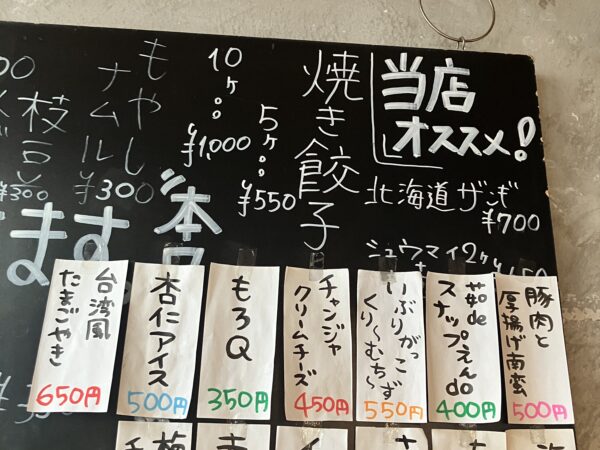 当店
オススメ!
北海道ザンギ
¥700
シュウマイ2ケ
焼き餃子
5ケ
¥550
10ケ
¥1,000
もやし
ナムル
¥300
枝豆
¥300
ます。
豚肉と
厚揚げ南蛮
500円
茹de
スナップえんdo
400円
いぶりがっこ
くりーむちーず
550円
チャンジャ
クリームチーズ
450円
もろQ
350円
杏仁アイス
500円
台湾風
たまごやき
650円
梅